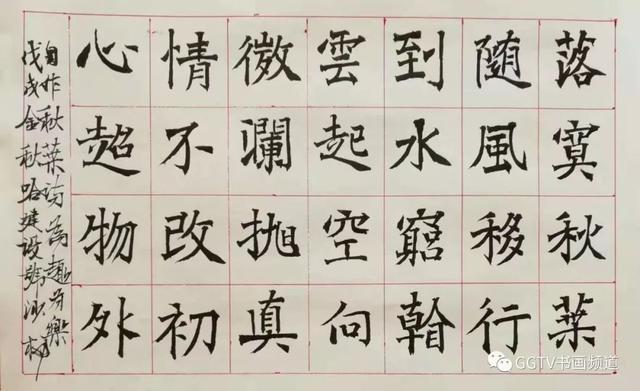 落寞秋葉
隨風移行
到水窮
雲起空向
微瀾抛真
情不改初
心超物外
自作秋葉诗為趣為樂
戊戌金秋哈建设
GGTV书画频道